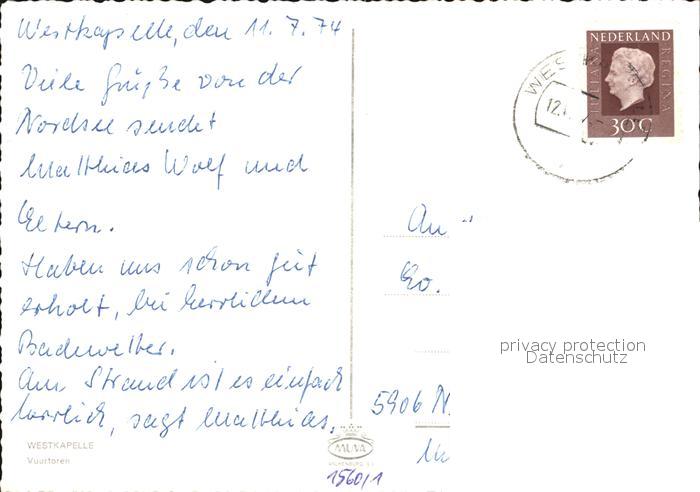 Westkapelle, den 11. 7. 74
Viele Grüße von der
Nordsee sendet
Matthias Wolf und
Eltern.
Haben uns schon gut
erholt, bei herrlichem
Badewetter.
Am Strand ist es einfach
herrlich, sagt Matthias.
WESTKAPELLE
Vuurtoren
MUVA
VALKENBURG
1560/1
NEDERLAND
JULIANA REGINA
30 C
WES
12.
An
privacy protection
Datenschutz
5906 N.